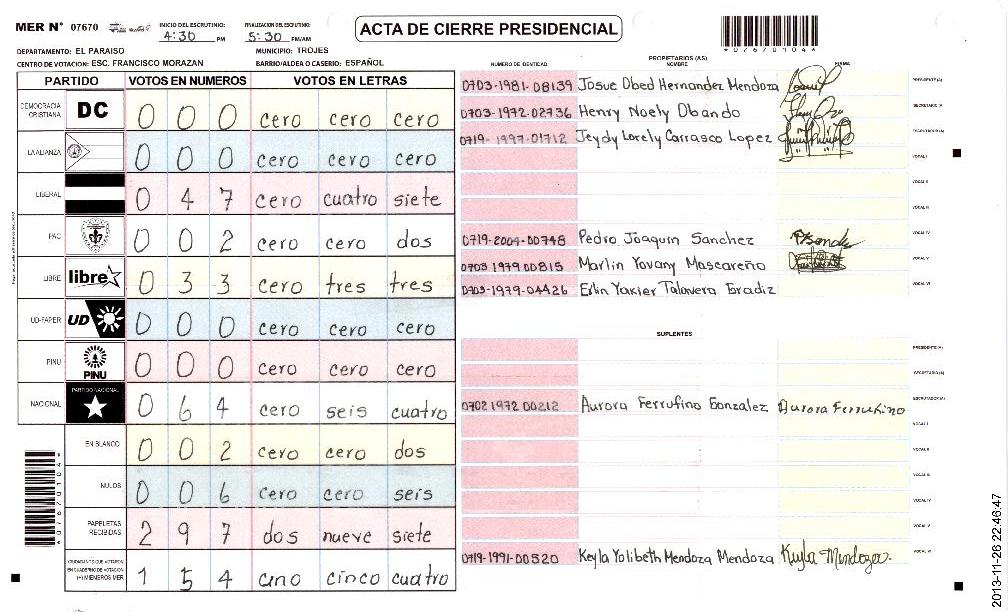 MER N° 07670 INICIO DEL ESCRUTINIO: 4:30 PM FINALIZACION DEL ESCRUTINIO: 5:30 PM/AM
ACTA DE CIERRE PRESIDENCIAL
DEPARTAMENTO: EL PARAISO MUNICIPIO: TROJES
CENTRO DE VOTACION: ESC. FRANCISCO MORAZAN BARRIO/ALDEA O CASERIO: ESPAÑOL
PARTIDO VOTOS EN NUMEROS VOTOS EN LETRAS
DEMOCRACIA CRISTIANA DC 0 0 0 cero cero cero
LA ALIANZA 0 0 0 cero cero cero
LIBERAL 0 4 7 cero cuatro siete
PAC 0 0 2 cero cero dos
LIBRE libre 0 3 3 cero tres tres
UD-FAPER UD 0 0 0 cero cero cero
PINU PINU 0 0 0 cero cero cero
NACIONAL PARTIDO NACIONAL 0 6 4 cero seis cuatro
EN BLANCO 0 0 2 cero cero dos
NULOS 0 0 6 cero cero seis
PAPELETAS RECIBIDAS 2 9 7 dos nueve siete
CIUDADANOS QUE VOTARON EN CUADERNO DE VOTACION (+) MIEMBROS MER 1 5 4 uno cinco cuatro
PROPIETARIOS (AS)
NUMERO DE IDENTIDAD NOMBRE FIRMA
0703-1981-08139 Josue Obed Hernandez Mendoza PRESIDENTE (A)
0703-1972-02736 Henry Noely Obando SECRETARIO (A)
0719-1997-01712 Jeydy Lorely Carrasco Lopez ESCRUTADOR (A)
VOCAL I
VOCAL II
VOCAL III
0719-2004-00748 Pedro Joaquin Sanchez VOCAL IV
0703 1979 00815 Marlin Yovany Mascareño VOCAL V
0703-1979-04426 Erlin Yaxier Talavera Eradiz VOCAL VI
SUPLENTES
PRESIDENTE (A)
SECRETARIO (A)
0702 1972 00212 Aurora Ferrufino Gonzalez Aurora Ferrufino ESCRUTADOR (A)
VOCAL I
VOCAL II
VOCAL III
VOCAL IV
VOCAL V
0719-1991-00520 Keyla Yolibeth Mendoza Mendoza Keyla Mendoza VOCAL VI
07670104
07670104
2013-11-26 22:46:47